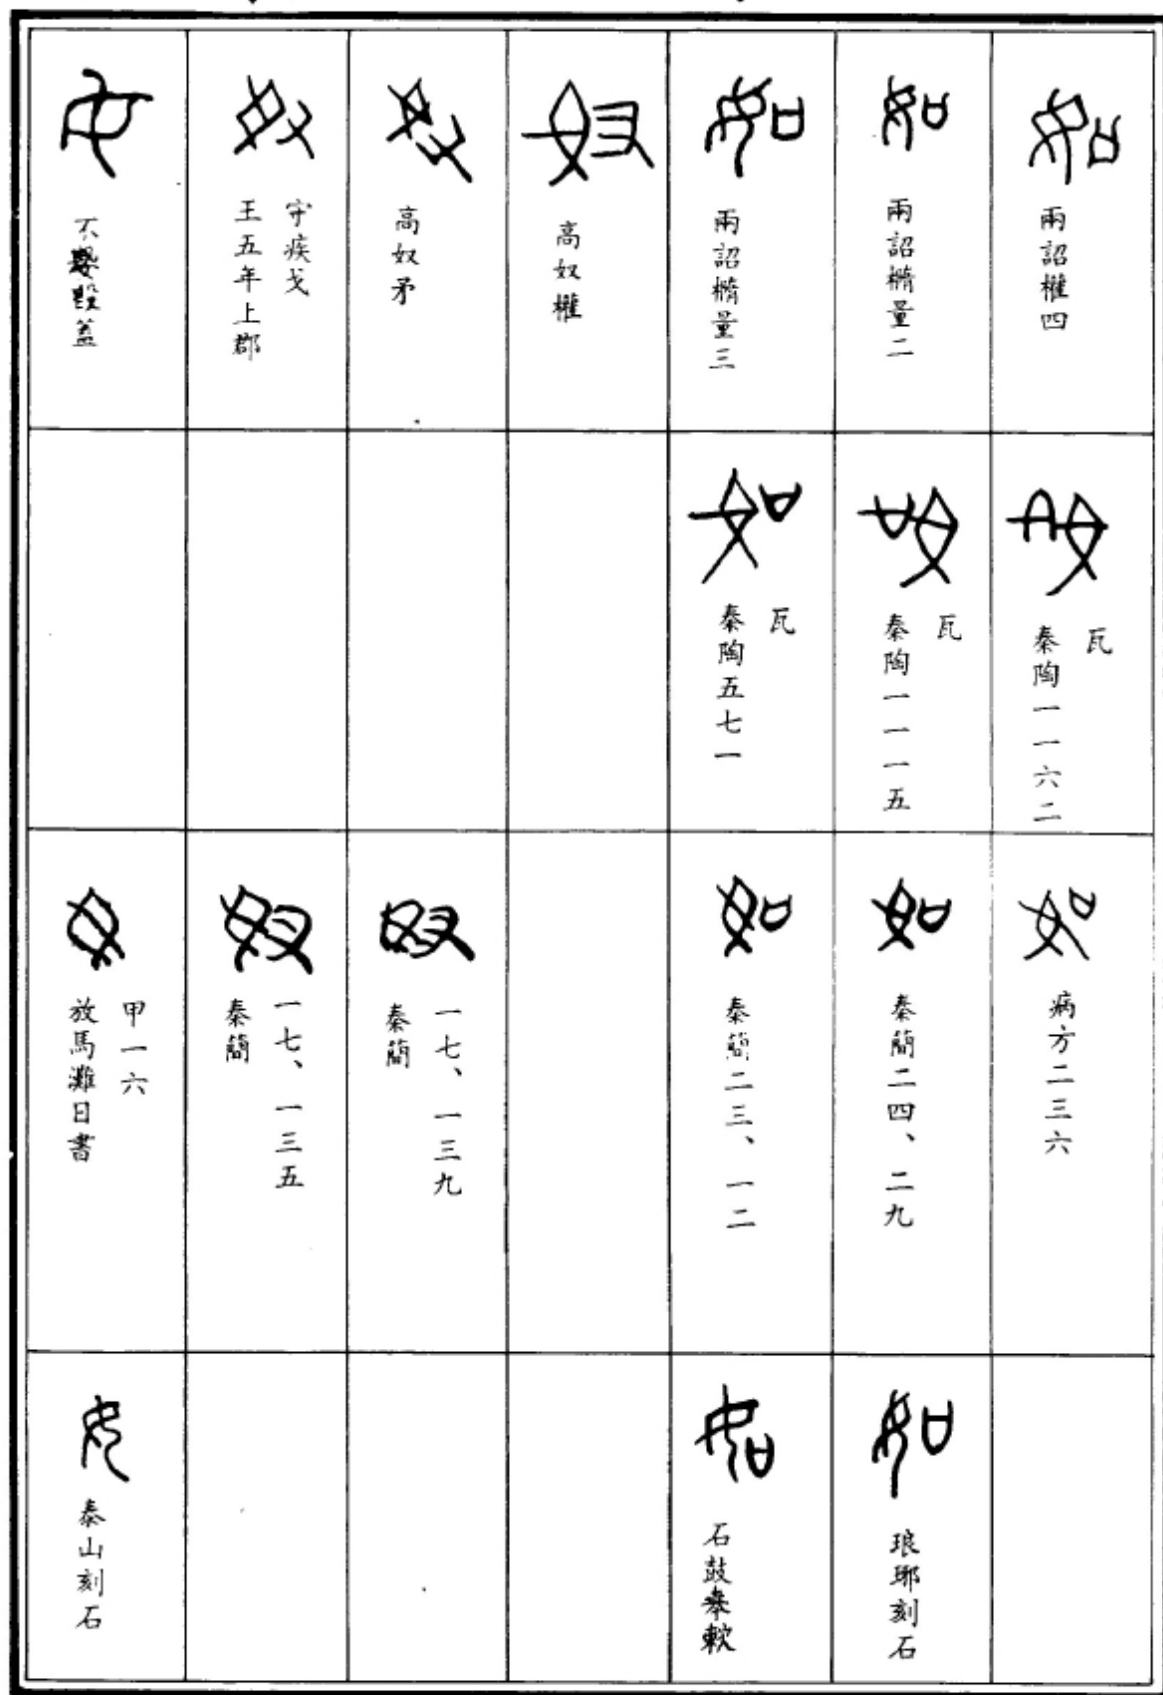 如
兩詔權四
如
兩詔橢量二
如
兩詔橢量三
奴
高奴權
奴
高奴矛
奴
王五年上郡
守疾戈
女
不𡢁簋蓋
如
秦陶一一六二
瓦
如
秦陶一一一五
瓦
如
秦陶五七一
瓦
如
病方二三六
如
秦簡二四、二九
如
秦簡二三、一二
奴
秦簡
一七、一三九
奴
秦簡
一七、一三五
女
放馬灘日書
甲一六
如
琅琊刻石
如
石鼓奉敕
女
泰山刻石